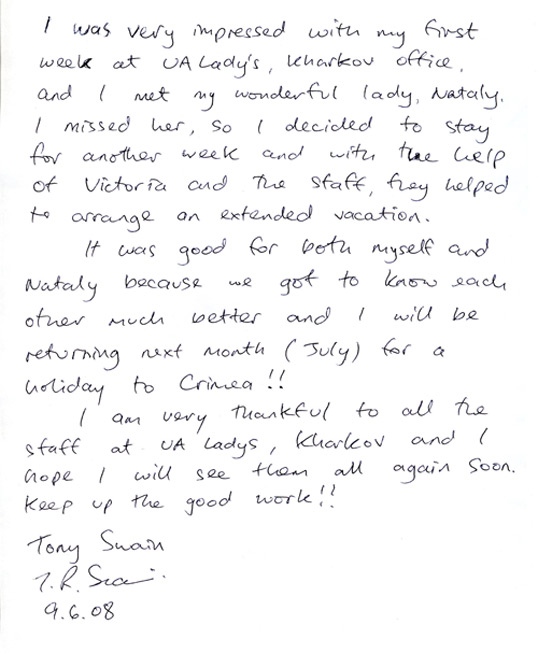 I was very impressed with my first
week at UA Lady's, Kharkov office,
and I met my wonderful lady, Nataly.
I missed her, so I decided to stay
for another week and with the help
of Victoria and the staff, they helped
to arrange an extended vacation.
It was good for both myself and
Nataly because we got to know each
other much better and I will be
returning next month (July) for a
holiday to Crimea!!
I am very thankful to all the
staff at UA Ladys, Kharkov and I
hope I will see them all again soon.
Keep up the good work!!
Tony Swain
T.R. Swain
9.6.08